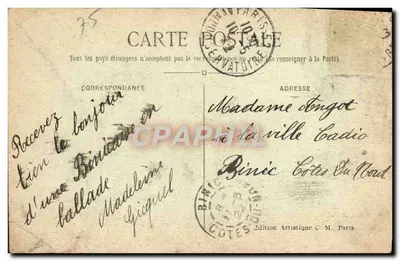 75
CARTE POSTALE
Tous les pays étrangers n'acceptent pas la
se renseigner à la Poste)
CORRESPONDANCE
ADRESSE
Recevez
bien le bonjour
d'une Binicaise en
ballade
Madeleine
Gicquel
Madame Angot
à la ville Cadio
Binic Côtes du Nord
BINIC
CÔTES
CPARAMA
Edition Artistique C. M. Paris